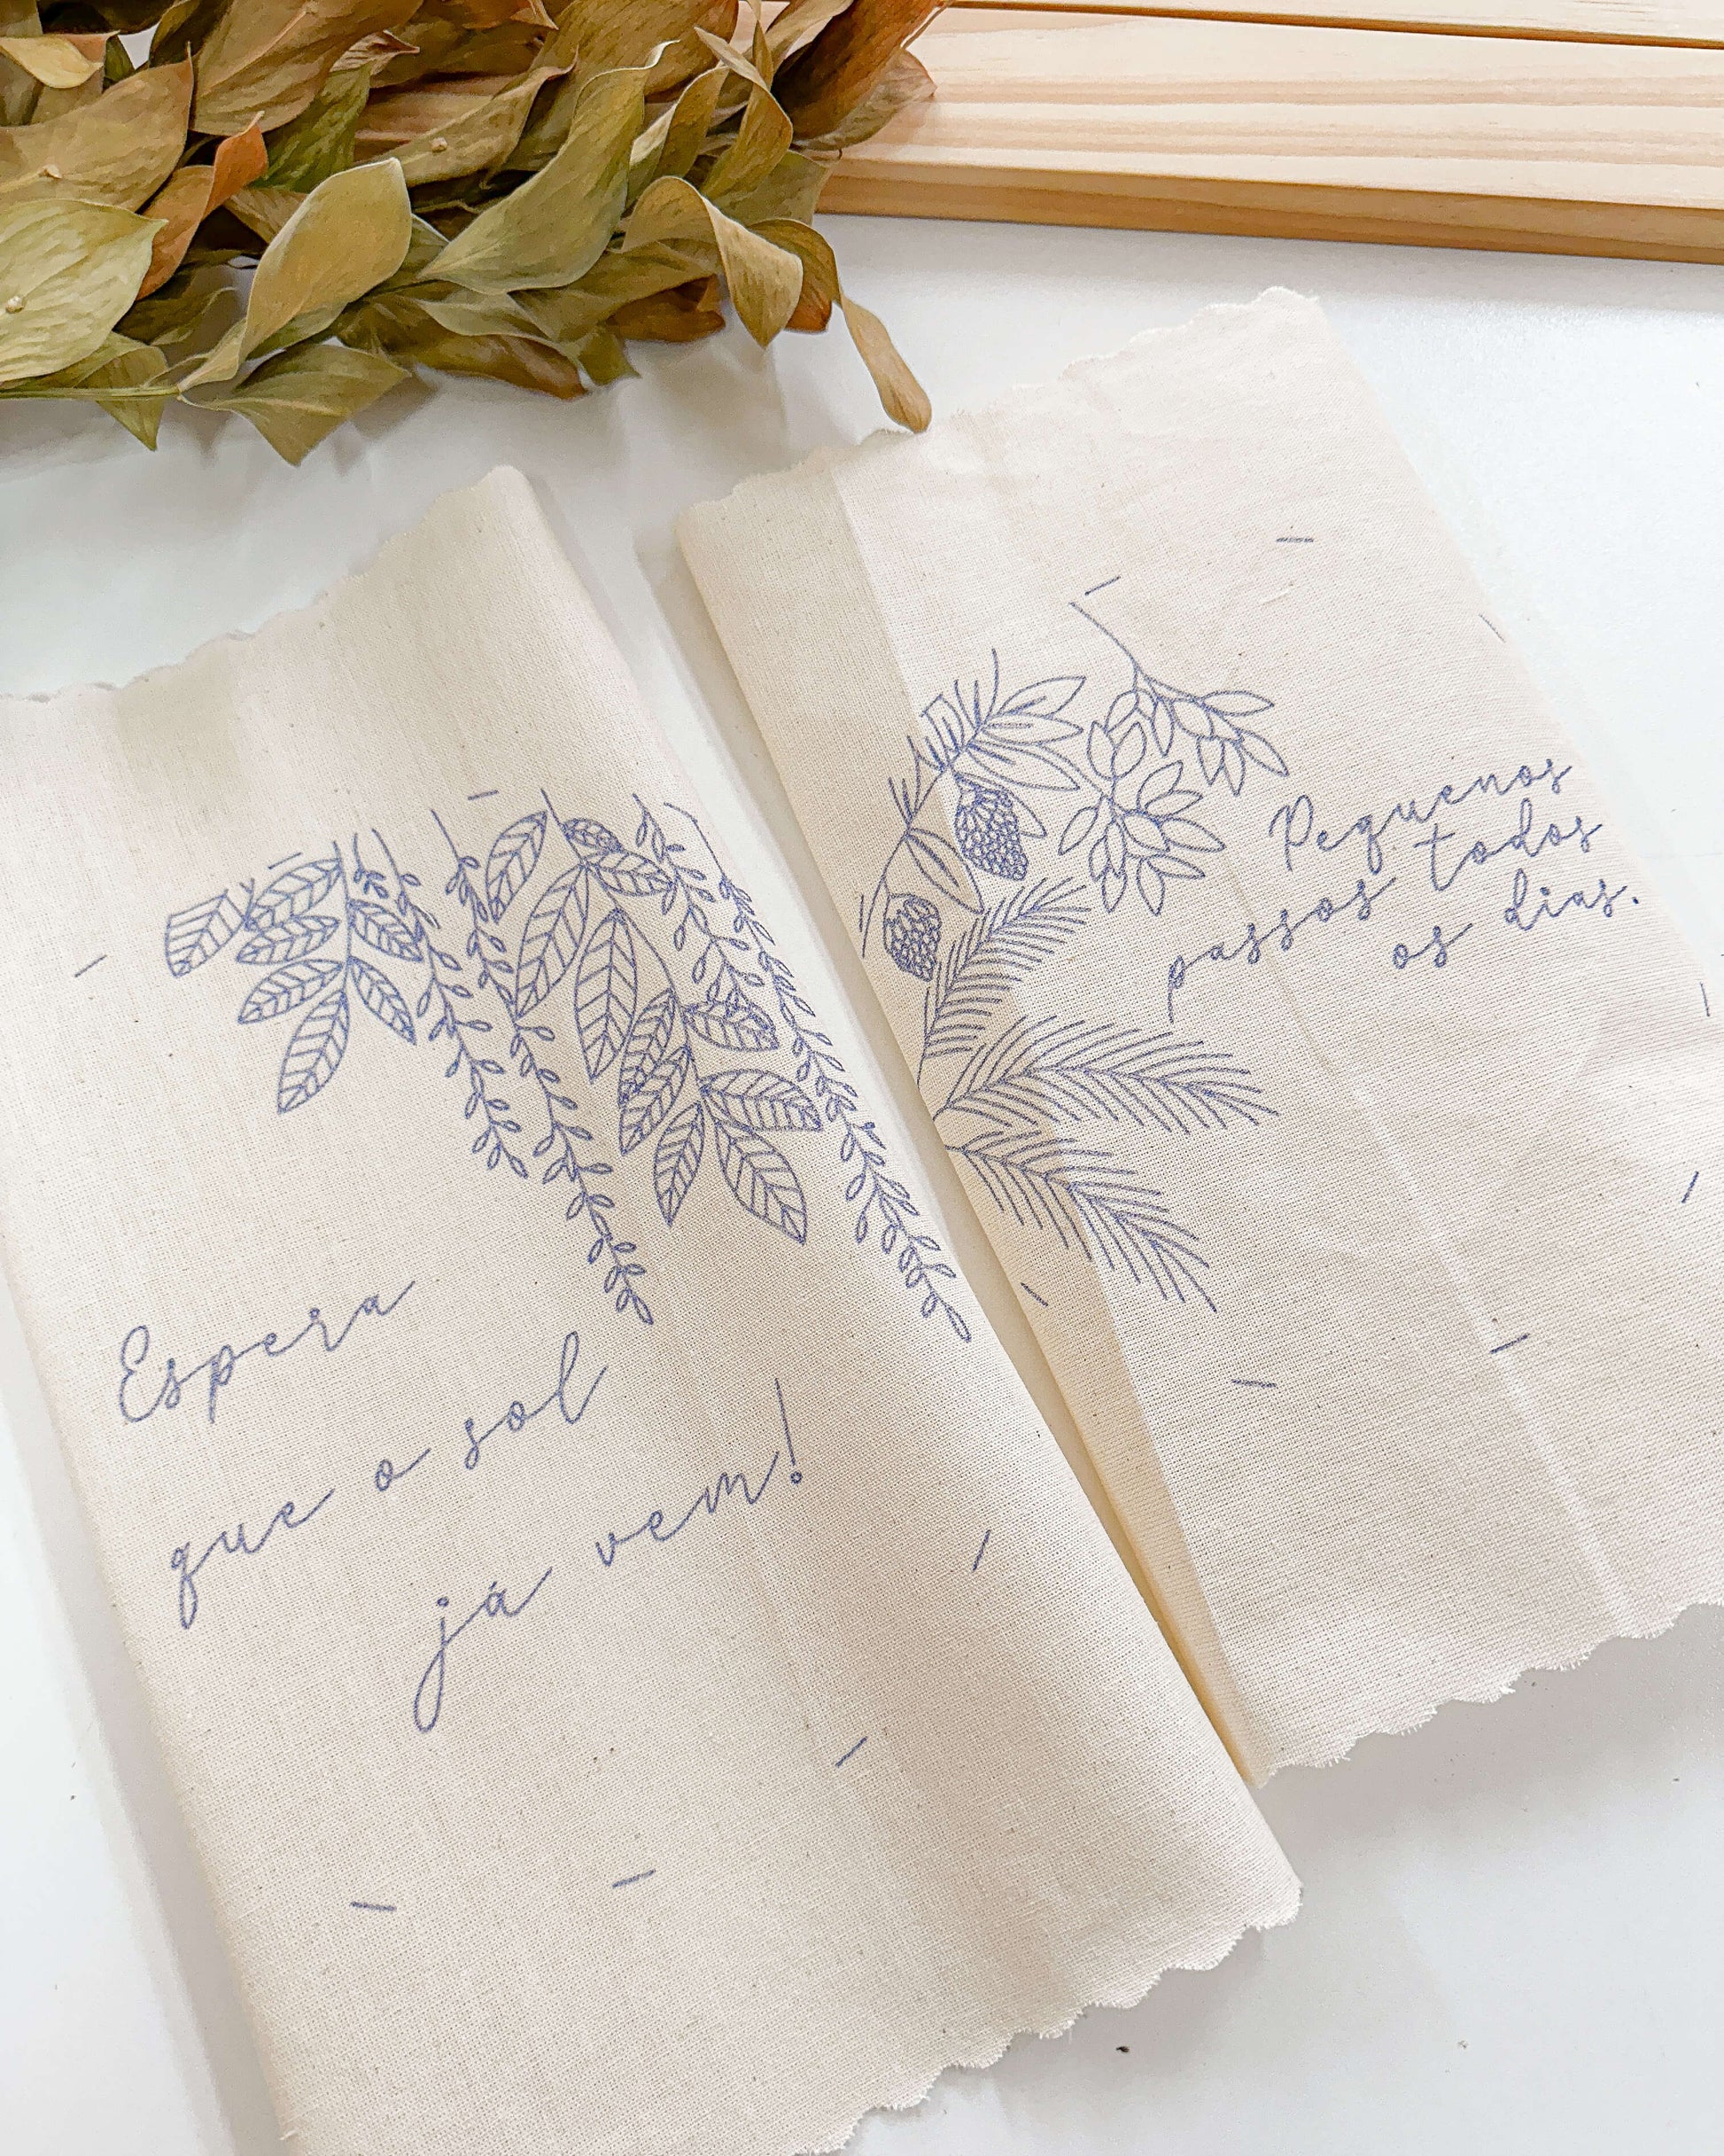 Espera
que o sol
já vem!
Pequenos
passos todos
os dias.